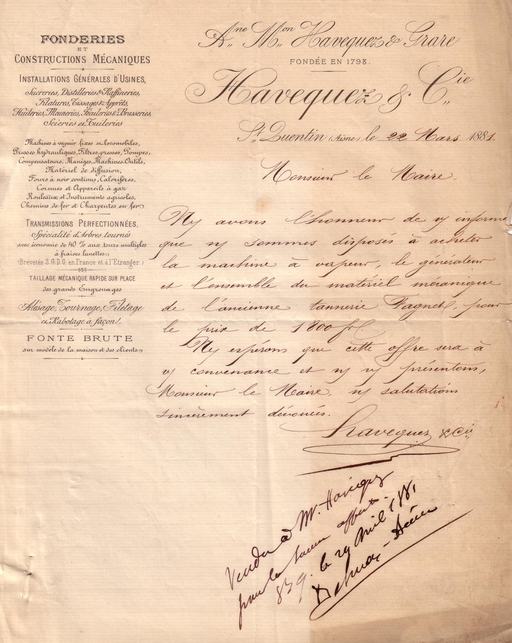 FONDERIES
ET
CONSTRUCTIONS MÉCANIQUES
INSTALLATIONS GÉNÉRALES D'USINES,
Sucreries, Distilleries & Raffineries,
Filatures, Tissages & Apprêts,
Huileries, Meuneries, Féculeries & Brasseries
Scieries et Tuileries
Machines à vapeur fixes et locomobiles,
Presses hydrauliques, Filtres-presses, Pompes,
Compensateurs, Manèges, Machines-Outils,
Matériel de diffusion,
Fours à noir continus, Calorifères,
Cornues et Appareils à gaz
Rouleaux et Instruments agricoles,
Chemins de fer et Chargeurs en fer
TRANSMISSIONS PERFECTIONNÉES,
Spécialité d'Arbres tournés
avec économie de 40 % aux tours multiples
à fraises lunettes
(Brevetés S.G.D.G. en France et à l'Étranger)
TAILLAGE MÉCANIQUE RAPIDE SUR PLACE
des grands Engrenages
Alésage, Tournage, Filetage
et Rabotage à façon
FONTE BRUTE
sur modèle de la maison et des clients
Ane Mon Havequez & Grare
FONDÉE EN 1793
Havequez & Cie
St Quentin (Aisne) le 22 Mars 1881
Monsieur le Maire.
Ns avons l'honneur de vs informer
que ns sommes disposés à acheter
la machine à vapeur, le générateur
et l'ensemble du matériel mécanique
de l'ancienne tannerie pour
le prix de 1800 f.
Ns espérons que cette offre sera à
vs convenance et ns vs présentons,
Monsieur le Maire, ns salutations
sincèrement dévouées.
Havequez & Cie
Vendu à Mr. Havequez
pour la somme offerte.
le 29 Avril 1881